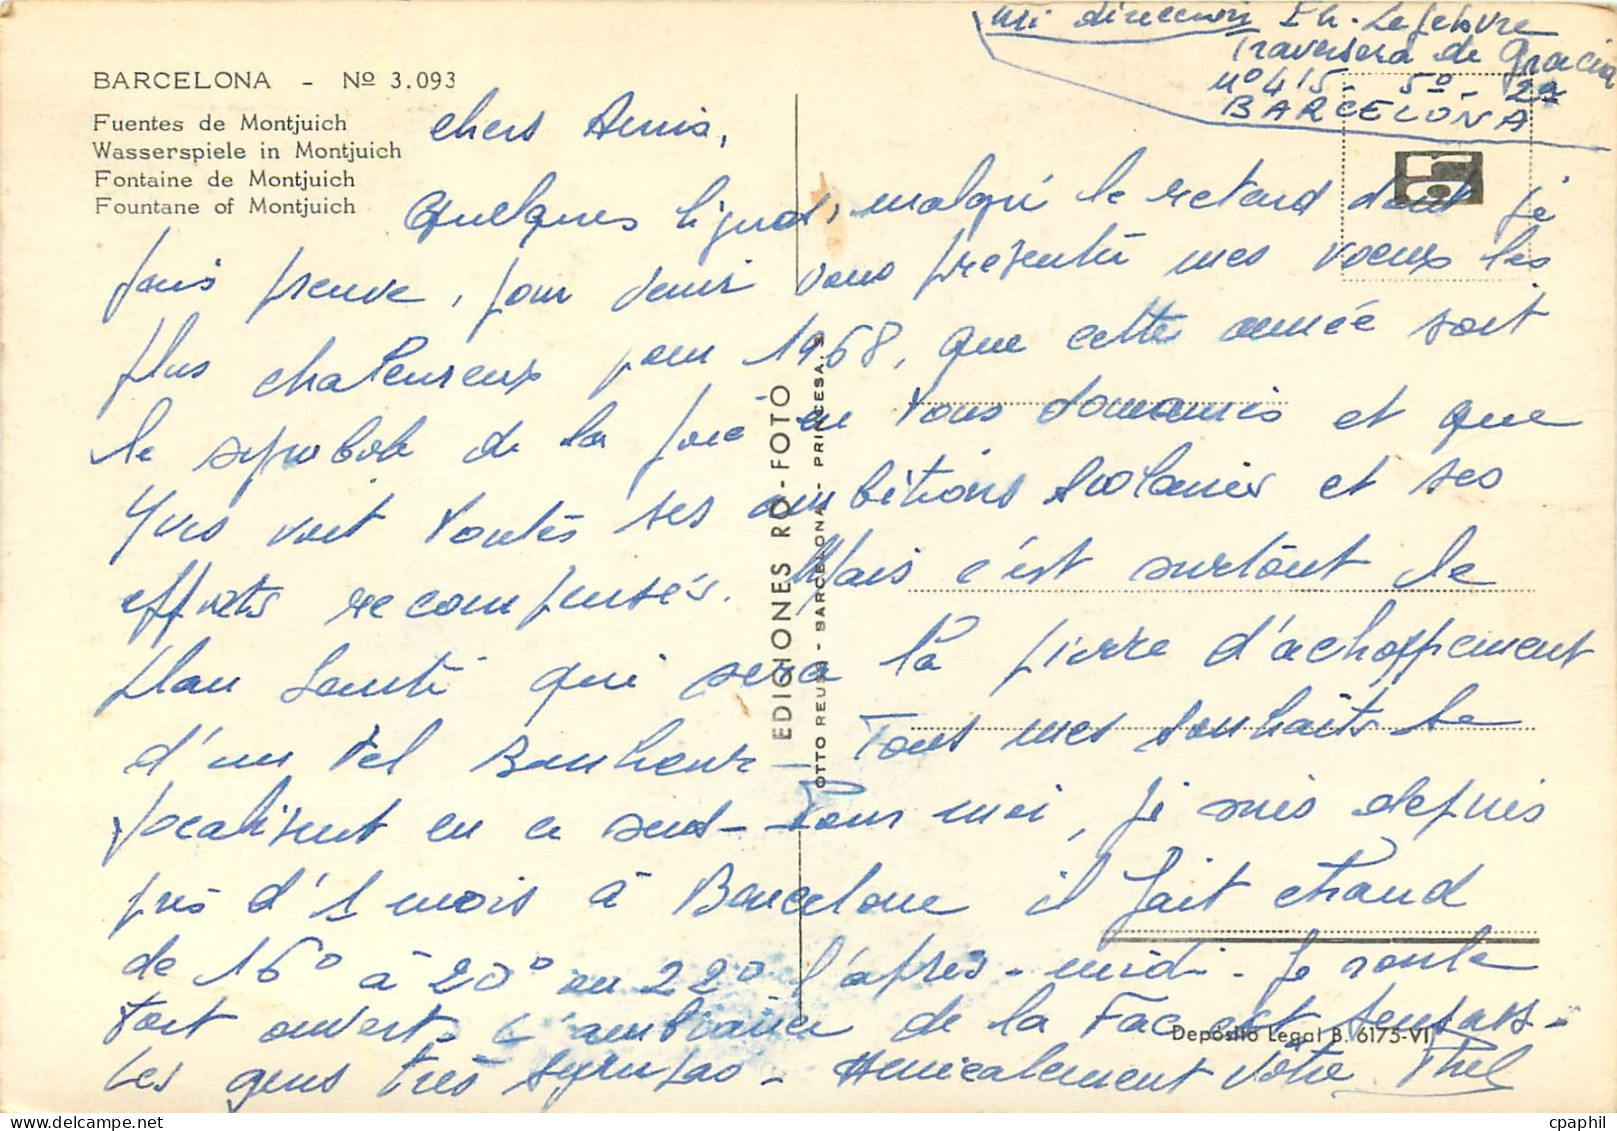 Mi direccion Ph. Lefebvre
Travesera de Gracia
nº 415 - 5º - 2ª
BARCELONA
BARCELONA - Nº 3.093
Fuentes de Montjuich
Wasserspiele in Montjuich
Fontaine de Montjuich
Fountane of Montjuich
chers Amis,
Quelques lignes, malgré le retard dont je
fais preuve, pour venir vous présenter mes voeux les
plus chaleureux pour 1968, que cette année soit
le symbole de la joie en tous domaines et que
Yves voit toutes ses ambitions scolaires et ses
efforts recompensés. Mais c'est surtout le
plan santé qui sera la pierre d'achoppement
d'un tel Bonheur - Tous mes souhaits se
focalisent en ce sens - Pour moi, je suis depuis
près d'1 mois à Barcelone il fait chaud
de 16° à 20° ou 22° l'après-midi - Je roule
toit ouvert. L'ambiance de la Fac est sensass -
Les gens très sympas - Amicalement Vôtre Phil
EDICIONES RO-FOTO
OTTO REUSS - BARCELONA - PRINCESA,
Depósito Legal B. 6175-VI
cpaphil